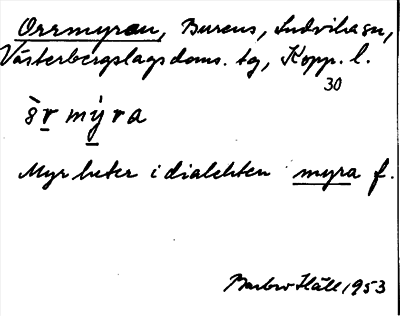 Orrmyran, Burens, Ludvika sn,
Västerbergslags doms. tg, Kopp. l.
30
ò̀r mýra
Myr heter i dialekten myra f.
Barbro Häll 1953